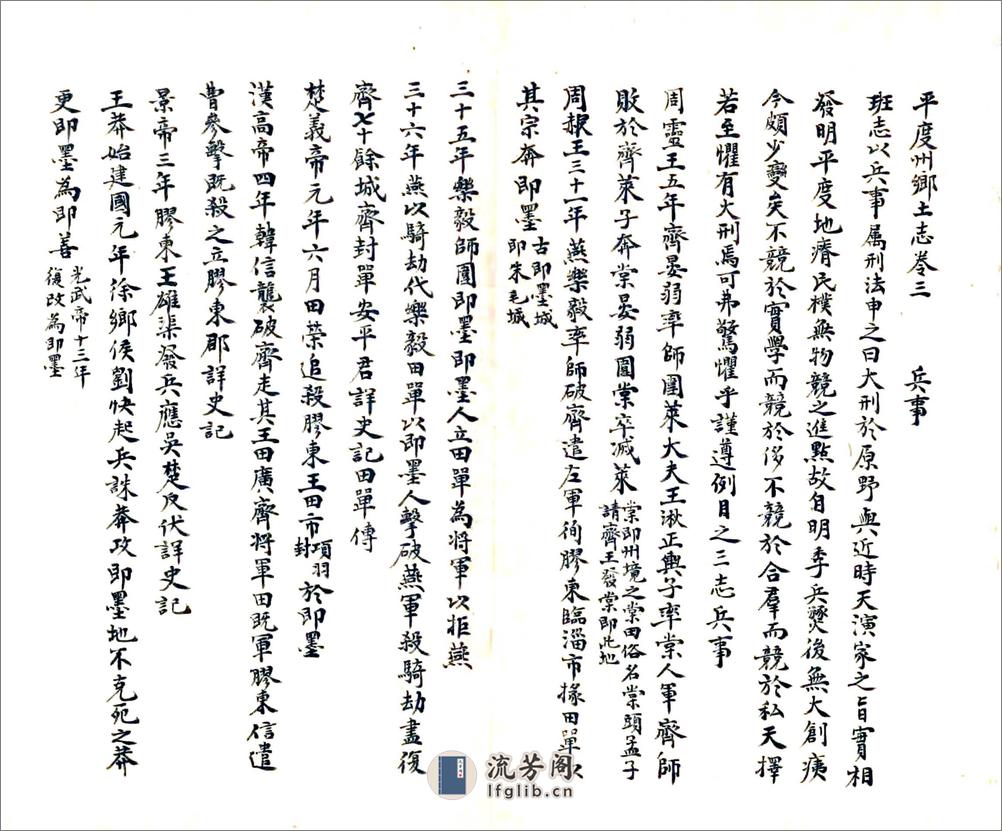 平度州鄉土志卷三　兵事
班志以兵事属刑法申之曰大刑於原野與近時天演家之旨實相
發明平度地瘠民樸無物競之進點故自明季兵燹後無大創痍
今頗少變矣不競於實學而競於侈不競於合羣而競於私天擇
若至懼有大刑焉可弗驚懼乎謹遵例目之三志兵事
周靈王五年齊晏弱率師圍萊大夫王湫正輿子率棠人軍齊師
敗於齊萊子奔棠晏弱圍棠卒滅萊棠即州境之棠田俗名棠頭孟子
請齊王發棠即此地
周赧王三十一年燕樂毅率師破齊遣左軍徇膠東臨淄市掾田單以
其宗奔即墨古即墨城
即朱毛城
三十五年樂毅師圍即墨即墨人立田單為將軍以拒燕
三十六年燕以騎劫代樂毅田單以即墨人擊破燕軍殺騎劫盡復
齊七十餘城齊封單安平君詳史記田單傳
楚義帝元年六月田榮追殺膠東王田市項羽封於即墨
漢高帝四年韓信襲破齊走其王田廣齊將軍田既軍膠東信遣
曹參擊既殺之立膠東郡詳史記
景帝三年膠東王雄渠發兵應吳楚反伏詳史記
王莽始建國元年徐鄉侯劉快起兵誅莽攻即墨地不克死之莽
更即墨為即善光武帝十三年
復改為即墨
流芳阁
lfglib.cn